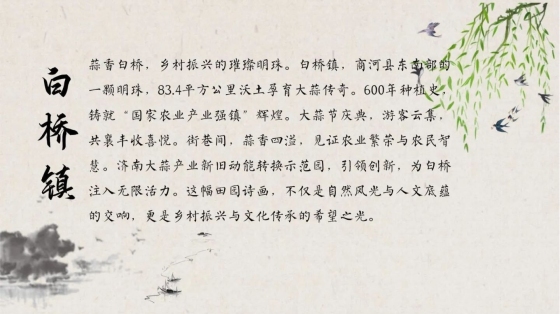 白桥镇
蒜香白桥，乡村振兴的璀璨明珠。白桥镇，商河县东南部的
一颗明珠，83.4平方公里沃土孕育大蒜传奇。600年种植史，
铸就“国家农业产业强镇”辉煌。大蒜节庆典，游客云集，
共襄丰收喜悦。街巷间，蒜香四溢，见证农业繁荣与农民智
慧。济南大蒜产业新旧动能转换示范园，引领创新，为白桥
注入无限活力。这幅田园诗画，不仅是自然风光与人文底蕴
的交响，更是乡村振兴与文化传承的希望之光。